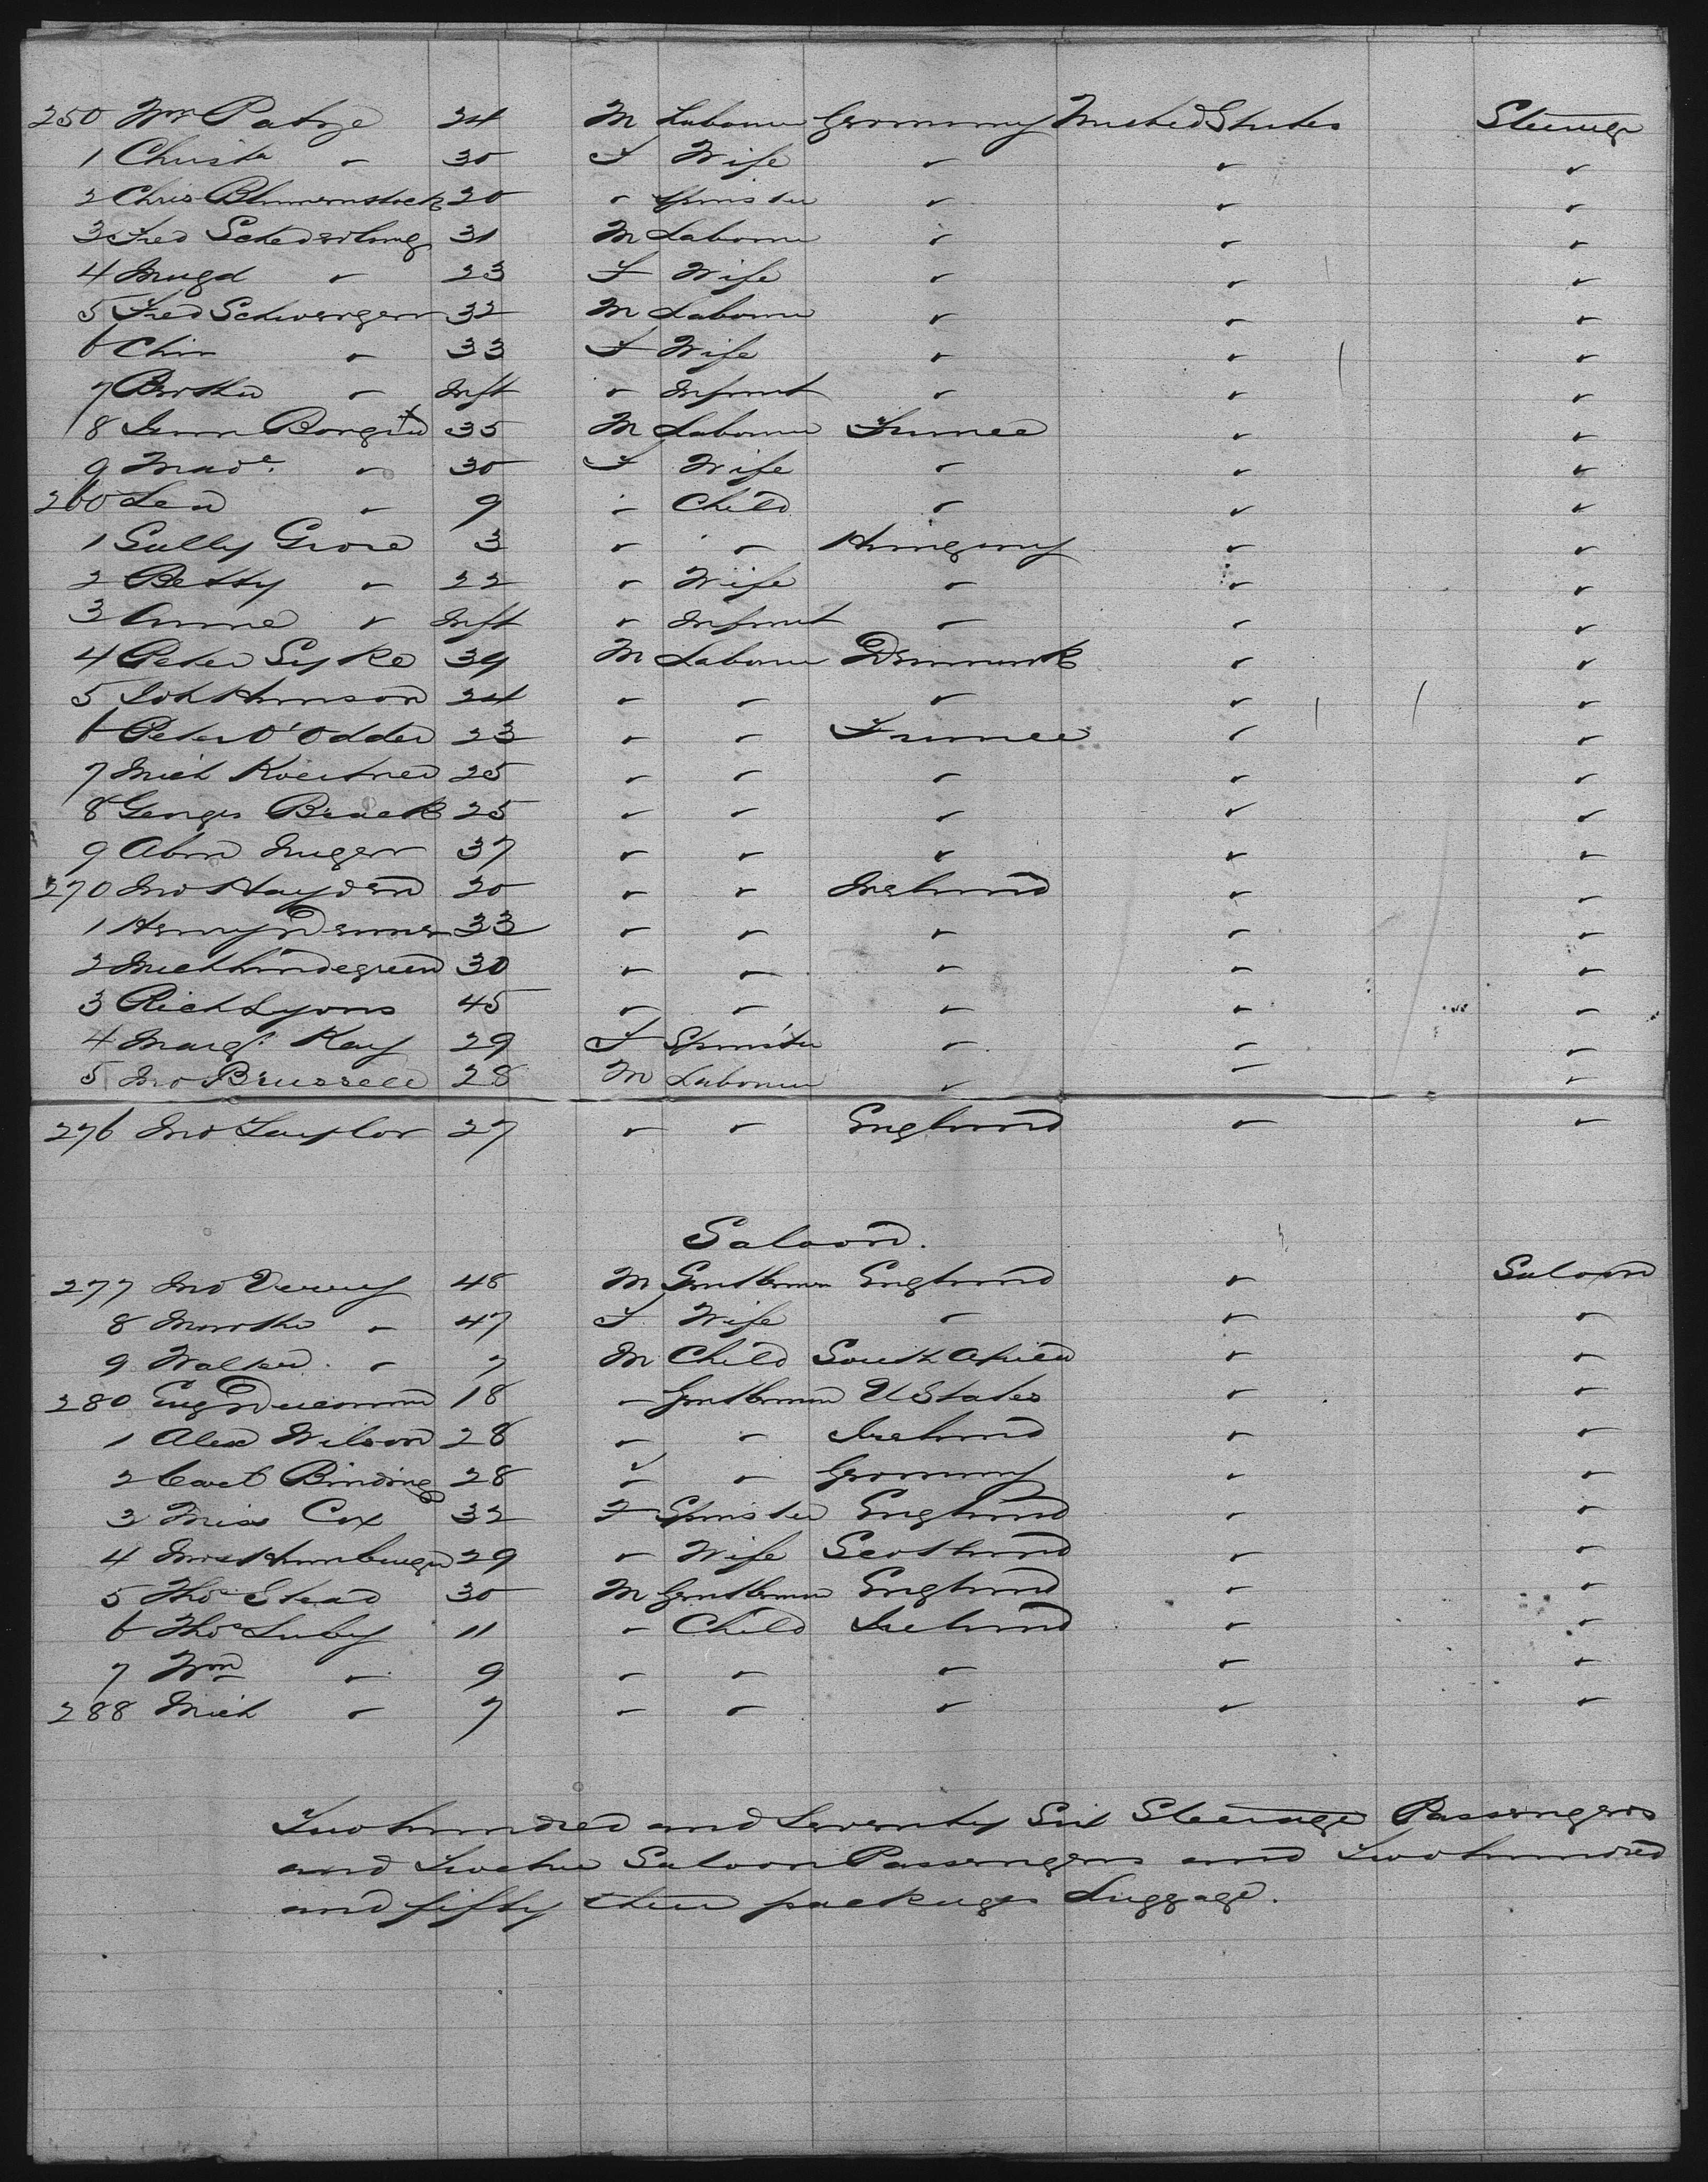 250 Wm Patze 24 M Labourer Germany United States Steerage
1 Christa " 30 F Wife " " "
2 Chris Blumenstock 20 " Spinster " " "
3 Fred 31 M Labourer " " "
4 Magd " 23 F Wife " " "
5 Fred 32 M Labourer " " "
6 Chin " 33 F Wife " " "
7 Bertha " Inft " Infant " " "
8 35 M Labourer France " "
9 " 30 F Wife " " "
260 Lea " 9 " Child " " "
1 Sally 3 " " Hungary " "
2 Betty " 22 " Wife " " "
3 Anna " Inft " Infant " " "
4 Peter 39 M Labourer Denmark " "
5 Joh Hanson 24 " " " " "
6 Peter O'Odder 23 " " France " "
7 Mich 25 " " " " "
8 Georges 25 " " " " "
9 37 " " " " "
270 Jno Hayden 20 " " Ireland " "
1 Henry 33 " " " " "
2 Mich 30 " " " " "
3 Rich Lyons 45 " " " " "
4 Margt Kay 29 F Spinster " " "
5 Jno Brussell 28 M Labourer " " "
276 Jno Taylor 27 " " England " "
Saloon.
277 Jno 48 M Gentleman England " Saloon
8 Martha " 47 F Wife " " "
9 Walter " 7 M Child South Africa " "
280 Eug Ducommun 18 " Gentleman U States " "
1 Alex Wilson 28 " " Ireland " "
2 Carl Binding 28 " " Germany " "
3 Miss Cox 32 F Spinster England " "
4 Mrs Hamburger 29 " Wife Scotland " "
5 Thos Stead 30 M Gentleman England " "
6 Thos Luby 11 " Child Ireland " "
7 Wm " 9 " " " " "
288 Mich " 7 " " " " "
Two hundred and Seventy Six Steerage Passengers
and Twelve Saloon Passengers and Two hundred
and fifty three packages Luggage.